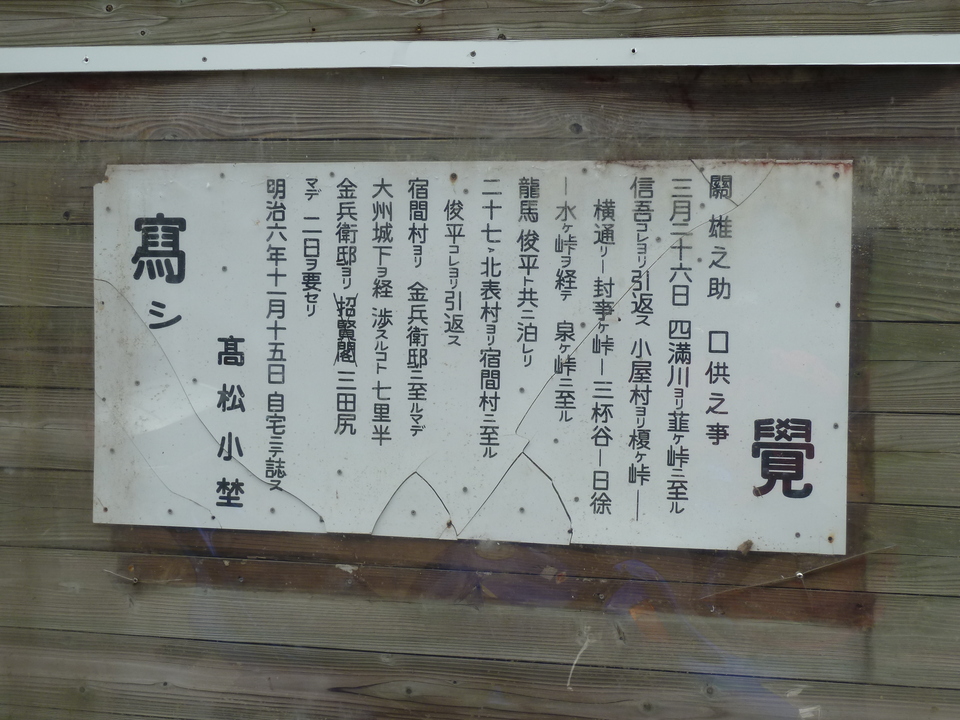 覺
關雄之助 口供之事
三月二十六日 四満川ヨリ韮ヶ峠ニ至ル
信吾コレヨリ引返ス 小屋村ヨリ榎ヶ峠―
横通リ―封事ヶ峠―三杯谷―日徐
―水ヶ峠ヲ経テ 泉ヶ峠ニ至ル
龍馬 俊平ト共ニ泊レリ
二十七、北表村ヨリ宿間村ニ至ル
俊平コレヨリ引返ス
宿間村ヨリ 金兵衛邸ニ至ルマデ
大州城下ヲ経 渉スルコト七里半
金兵衛邸ヨリ 招賢閣 三田尻
マデ 二日ヲ要セリ
明治六年十一月十五日 自宅ニテ誌ス
髙松小埜
寫シ